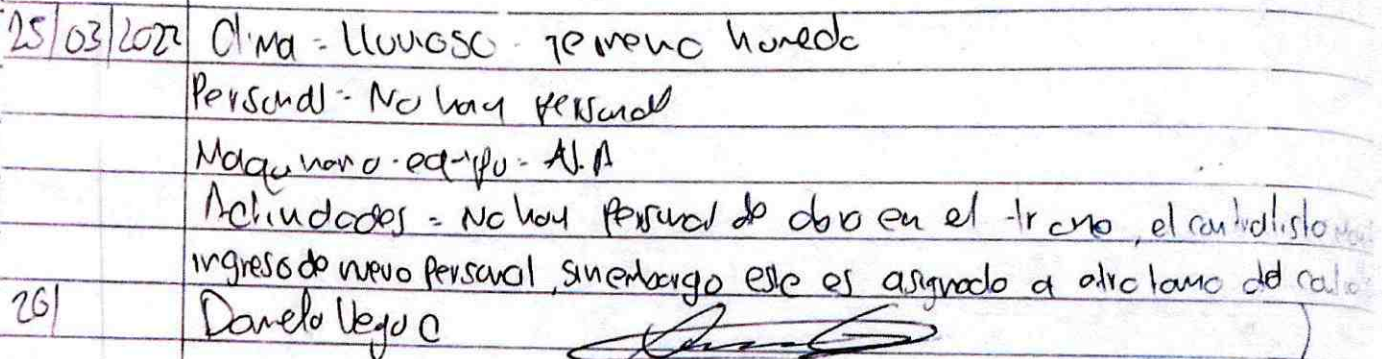 25/03/2022 Clima = Lluvioso - Terreno humedo
Personal = No hay personal
Maquinaria - equipo = N.A
Actividades = No hay personal de obra en el tramo, el contratista
ingreso de nuevo personal, sin embargo este es asignado a otro tramo del
26/ Daniela Vega C